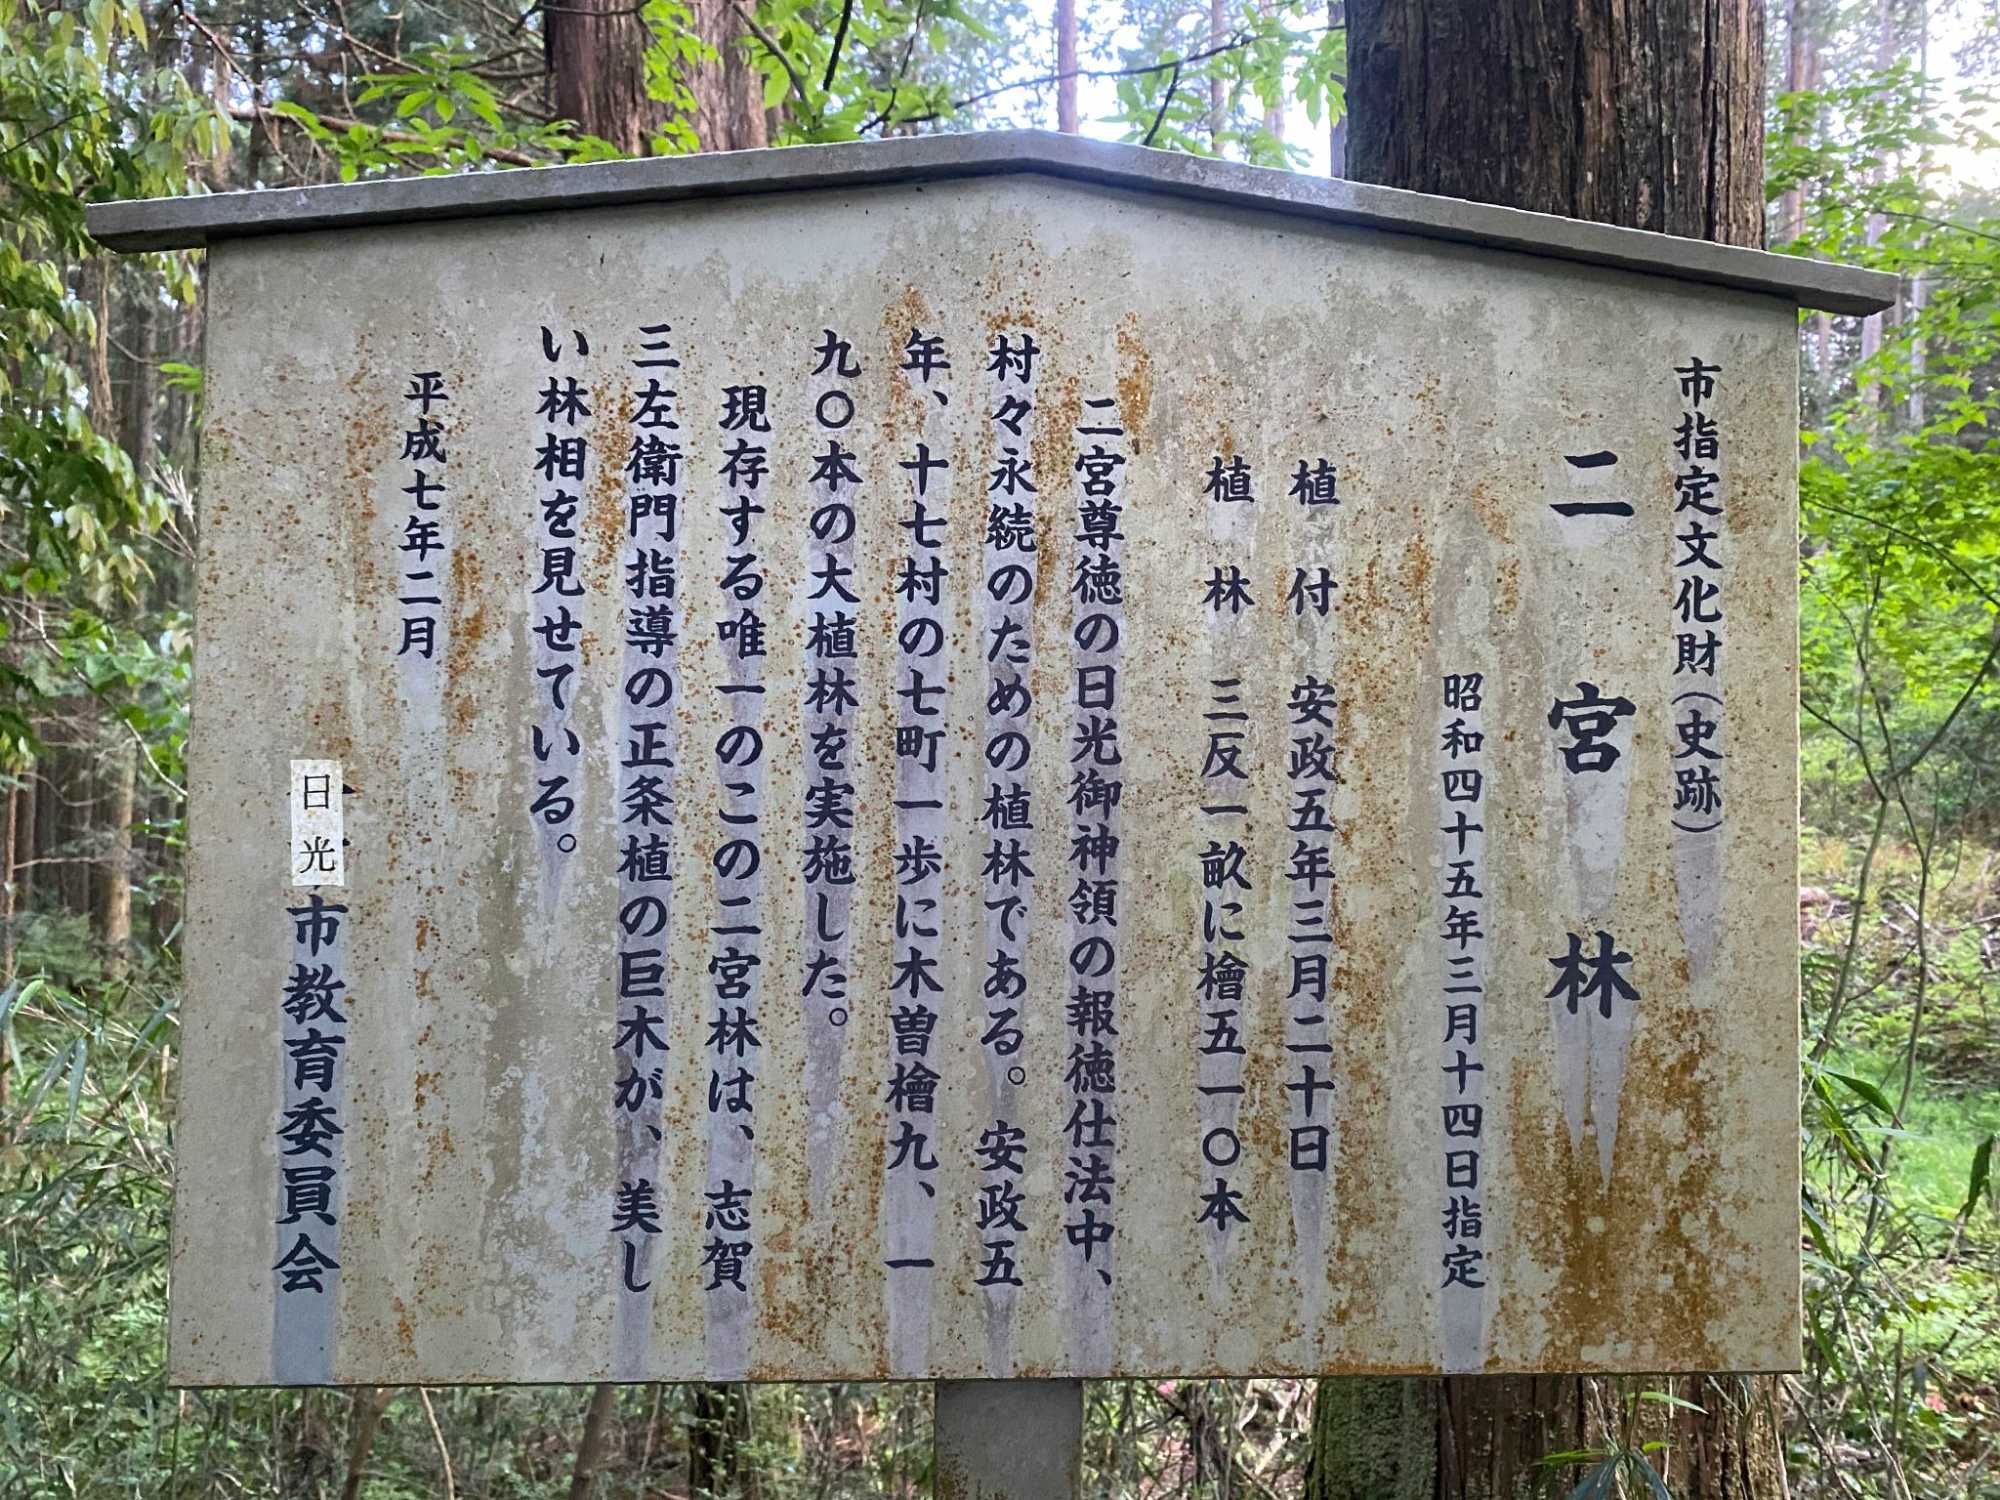 市指定文化財(史跡)
二宮林
昭和四十五年三月十四日指定
植付 安政五年三月二十日
植林 三反一畝に檜五一〇本
二宮尊徳の日光御神領の報徳仕法中、
村々永続のための植林である。安政五
年、十七村の七町一歩に木曽檜九、一
九〇本の大植林を実施した。
現存する唯一のこの二宮林は、志賀
三左衛門指導の正条植の巨木が、美し
い林相を見せている。
平成七年二月
日光市教育委員会